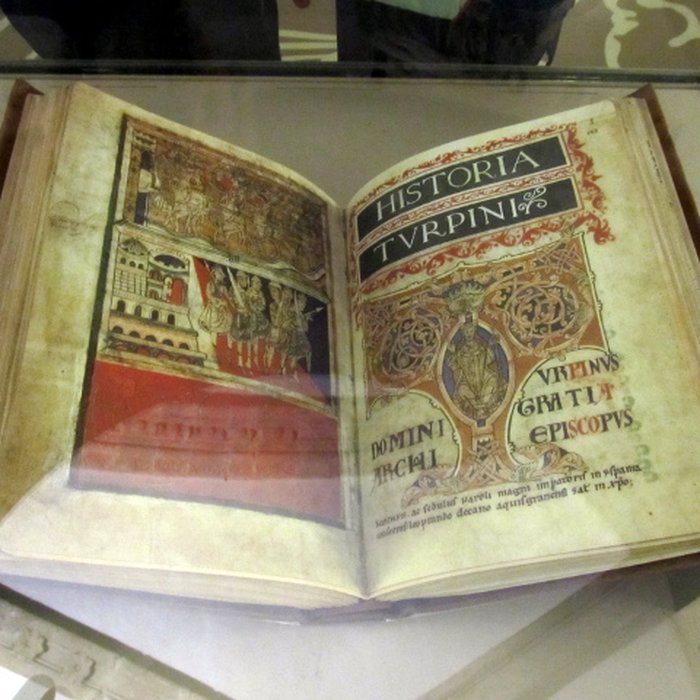 HISTORIA
TVRPINI
VRPINVS
DOMINI GRATIA
ARCHI EPISCOPVS
ac sedulus Karoli magni imperatoris in yspania
leoprando decano aquisgranensi sat in xpo;